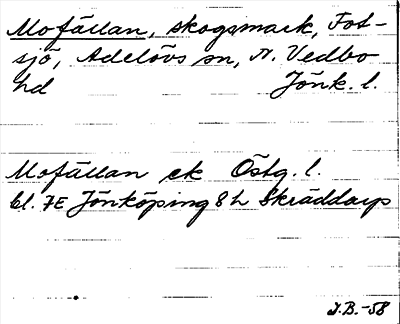 Mofällan, skogsmark, Fot-
sjö, Adelövs sn, N. Vedbo
hd Jönk. l.
Mofällan ek Östg. l.
bl. 7E Jönköping 8 h Skräddarp
J.B.-58